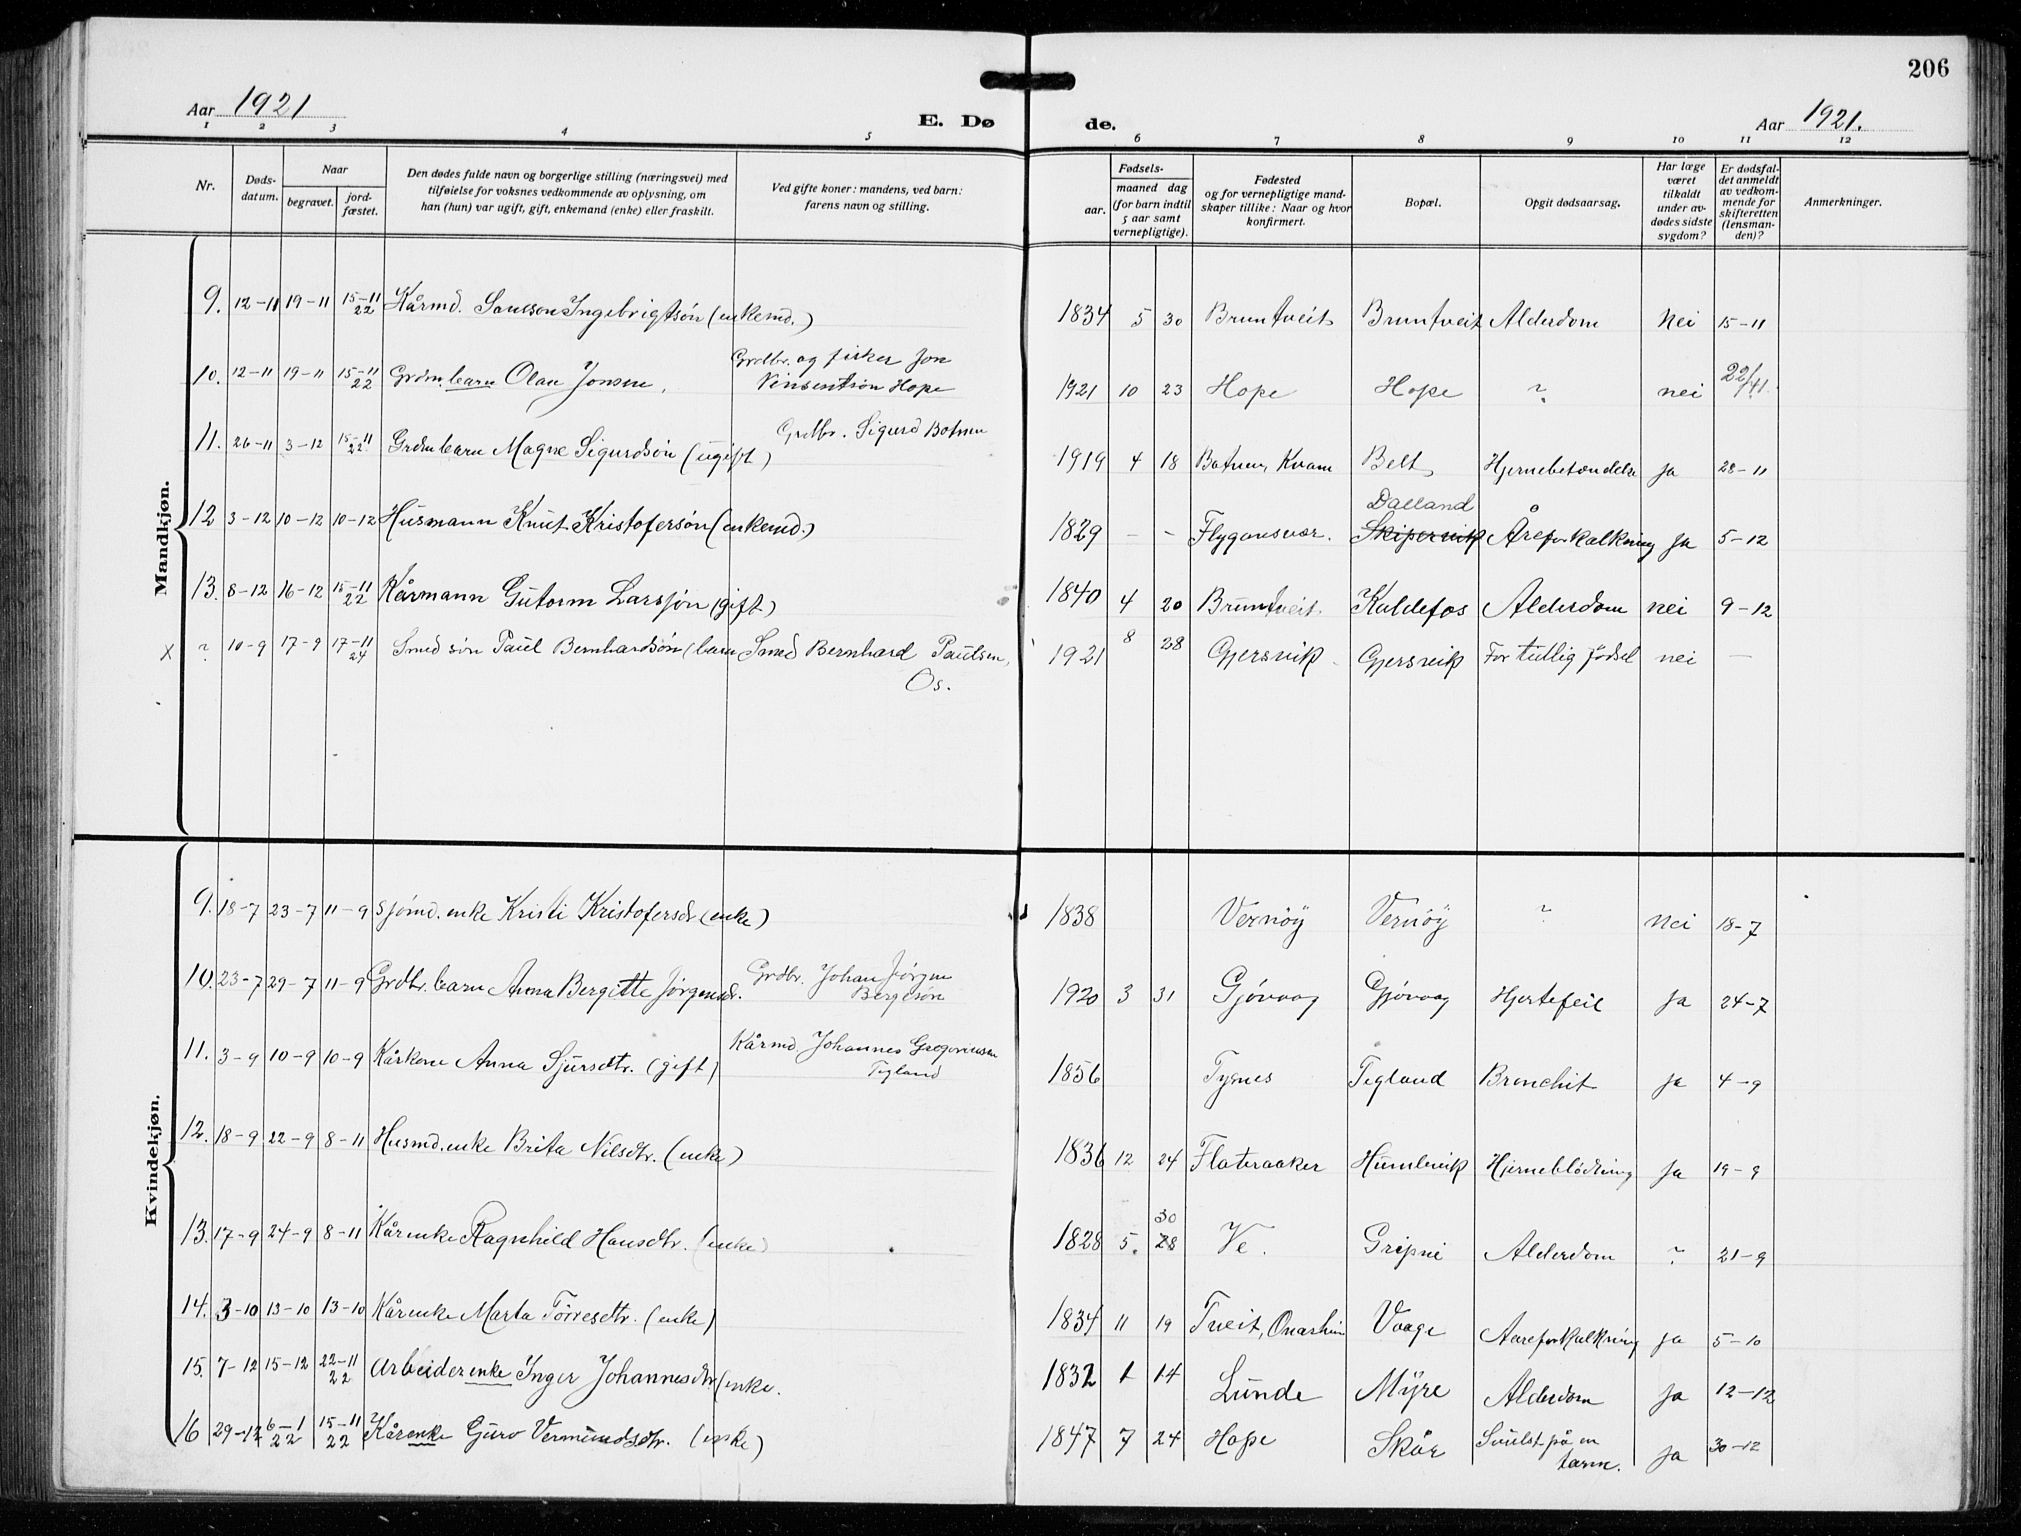 206
Aar 1921
E. Dø
de.
Aar 1921.
1 2 3 4 5 6 7 8 9 10 11 12
Nr.
Døds-
datum.
Naar
begravet.
jord-
fæstet.
Den dødes fulde navn og borgerlige stilling (næringsvei) med
tilføielse for voksnes vedkommende av oplysning, om
han (hun) var ugift, gift, enkemand (enke) eller fraskilt.
Ved gifte koner: mandens, ved barn:
farens navn og stilling.
Fødsels-
aar.
maaned dag
(for barn indtil
5 aar samt
vernepligtige).
Fødested
og for vernepligtige mand-
skaper tillike: Naar og hvor
konfirmert.
Bopæl.
Opgit dødsaarsag.
Har læge
været
tilkaldt
under av-
dødes sidste
sygdom?
Er dødsfal-
det anmeldt
av vedkom-
mende for
skifteretten
(lensman-
den)?
Anmerkninger.
Mandkjøn.
9. 12-11 19-11 15-11/22 Kårmd. Samson Ingebrigtsøn (enkemd.) 1834 5 30 Bruntveit Bruntveit Alderdom Nei 15-11
10. 12-11 19-11 15-11/22 Grdm. barn Olav Jonsen, Grdbr. og fisker Jon
Vinsentsøn Hope 1921 10 23 Hope Hope ? nei 22/11.
11. 26-11 3-12 15-11/22 Grdm barn Magne Sigurdsøn (ugift) Grdbr. Sigurd Botnen 1919 4 18 Botnen, Kvam Belt Hjernebetændelse ja 28-11
12 3-12 10-12 10-12 Husmann Knut Kristofersøn (enkemd.) 1829 - - Flygansvær. Dalland
Skipervik Åreforkalkning ja 5-12
13. 8-12 16-12 15-11/22 Kårmann Gutorm Larssøn (gift) 1840 4 20 Bruntveit Kaldefos Alderdom nei 9-12
x ? 10-9 17-9 17-11/24 Smed søn Paul Bernhardsøn (barn Smed Bernhard Paulsen,
Os. 1921 8 28 Gjersvik Gjersvik For tidlig fødsel nei —
Kvindekjøn.
9. 18-7 23-7 11-9 Sjømd. enke Kristi Kristofersdr (enke) 1838 Vernöy Vernöy ? Nei 18-7
10. 23-7 29-7 11-9 Grdbr. barn Anna Bergitte Jørgensdr. Grdbr. Johan Jørgen
Bergesøn 1920 3 31 Gjövaag Gjövaag Hjertefeil ja 24-7
11. 3-9 10-9 10-9 Kårkone Anna Sjursdtr. (gift) Kårmd. Johannes Gregoriussen
Tegland 1856 Tysnes Tegland Bronchit ja 4-9
12. 18-9 22-9 8-11 Husmd. enke Brita Nilsdtr. (enke) 1836 12 24 Flateraaker Humlevik Hjerneblödning ja 19-9
13. 17-9 24-9 8-11 Kårenke Ragnhild Hansdtr. (enke) 1828 5. 30
28 Ve. Gripne Alderdom ? 21-9
14. 3-10 13-10 13-10 Kårenke Marta Törresdtr. (enke) 1834 11 19 Tveit, Onarheim Vaage Aareforkalkning ja 5-10
15. 7-12 15-12 22-11/22 Arbeiderenke Inger Johannesdtr (enke. 1832 1 14 Lunde Myre Alderdom ja 12-12
16 29-12 6-1/22 15-11/22 Kårenke Guro Vermundsdtr. (enke) 1847 7 24 Hope Skår Svulst på en
tarm. ja 30-12